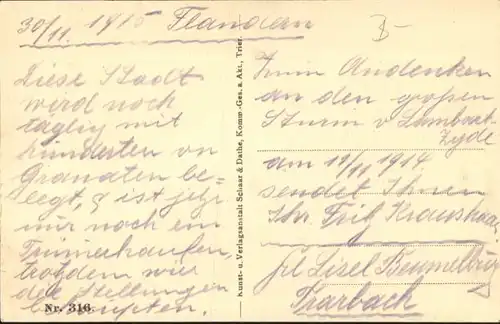 30/11. 1915 Flandern
Diese Stadt
wird noch
täglig mit
hunderten von
Granaten be-
legt, & ist jetzt
nur noch ein
Trümerhaufen
trotzdem wir
die Stellungen
behaupten.
Nr. 316.
Kunst- u. Verlagsanstalt Schaar & Dathe, Komm.-Ges. a. Akt., Trier.
Zum Andenken
an den großen
Sturm v Lombart-
Zyde
am 11/11 1914
sendet Ihnen
Ihr Fritz
frl Lisel Beumelburg
Trarbach